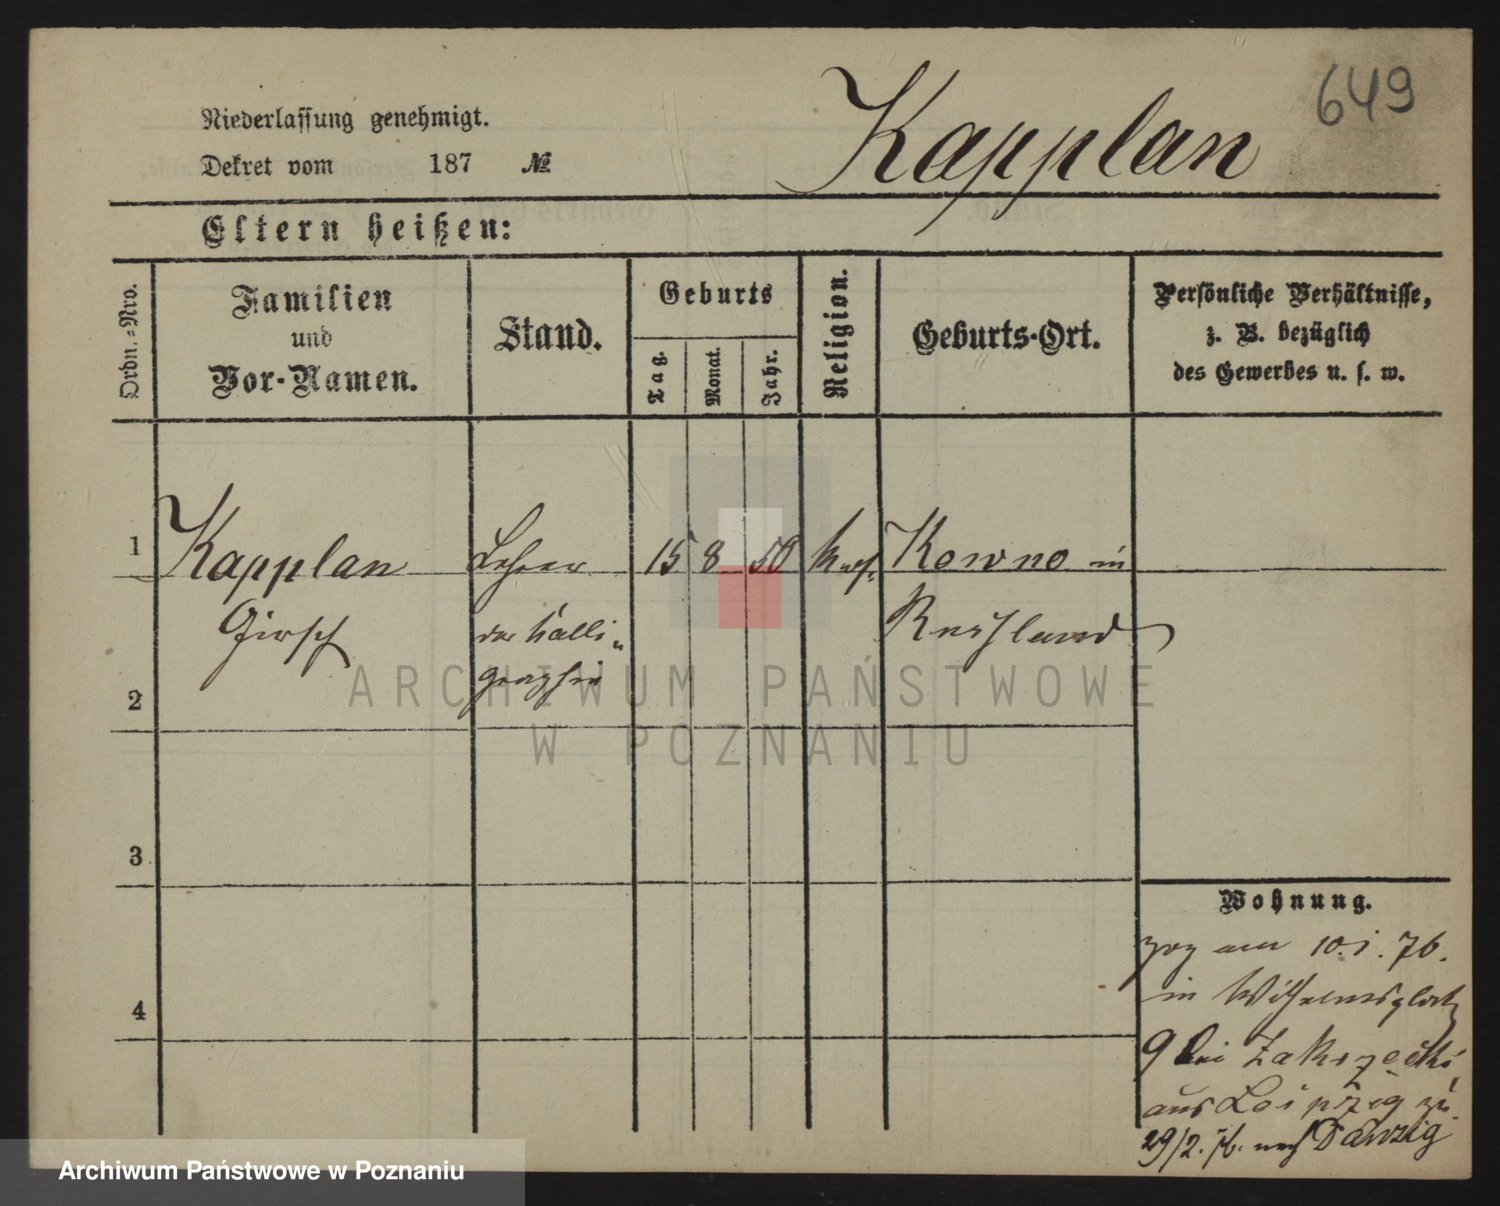 649
Kapplan
Niederlassung genehmigt.
Dekret vom 187 №
Eltern heißen:
Ordn.-Nro.
Familien
und
Vor-Namen.
Stand.
Geburts
Tag.
Monat.
Jahr.
Religion.
Geburts-Ort.
Persönliche Verhältnisse,
z. B. bezüglich
des Gewerbes u. s. w.
1 Kapplan Lehrer 15 8 50 Kowno in
Girsch der Kalli- Russland
graphie
2
3
4
Wohnung.
zog am 10. 1. 76.
in Wilhelmsplatz
9 bei Zakrzecki
aus Leipzig zu.
29/2. 76. nach Danzig
ARCHIWUM PAŃSTWOWE
W POZNANIU
Archiwum Państwowe w Poznaniu